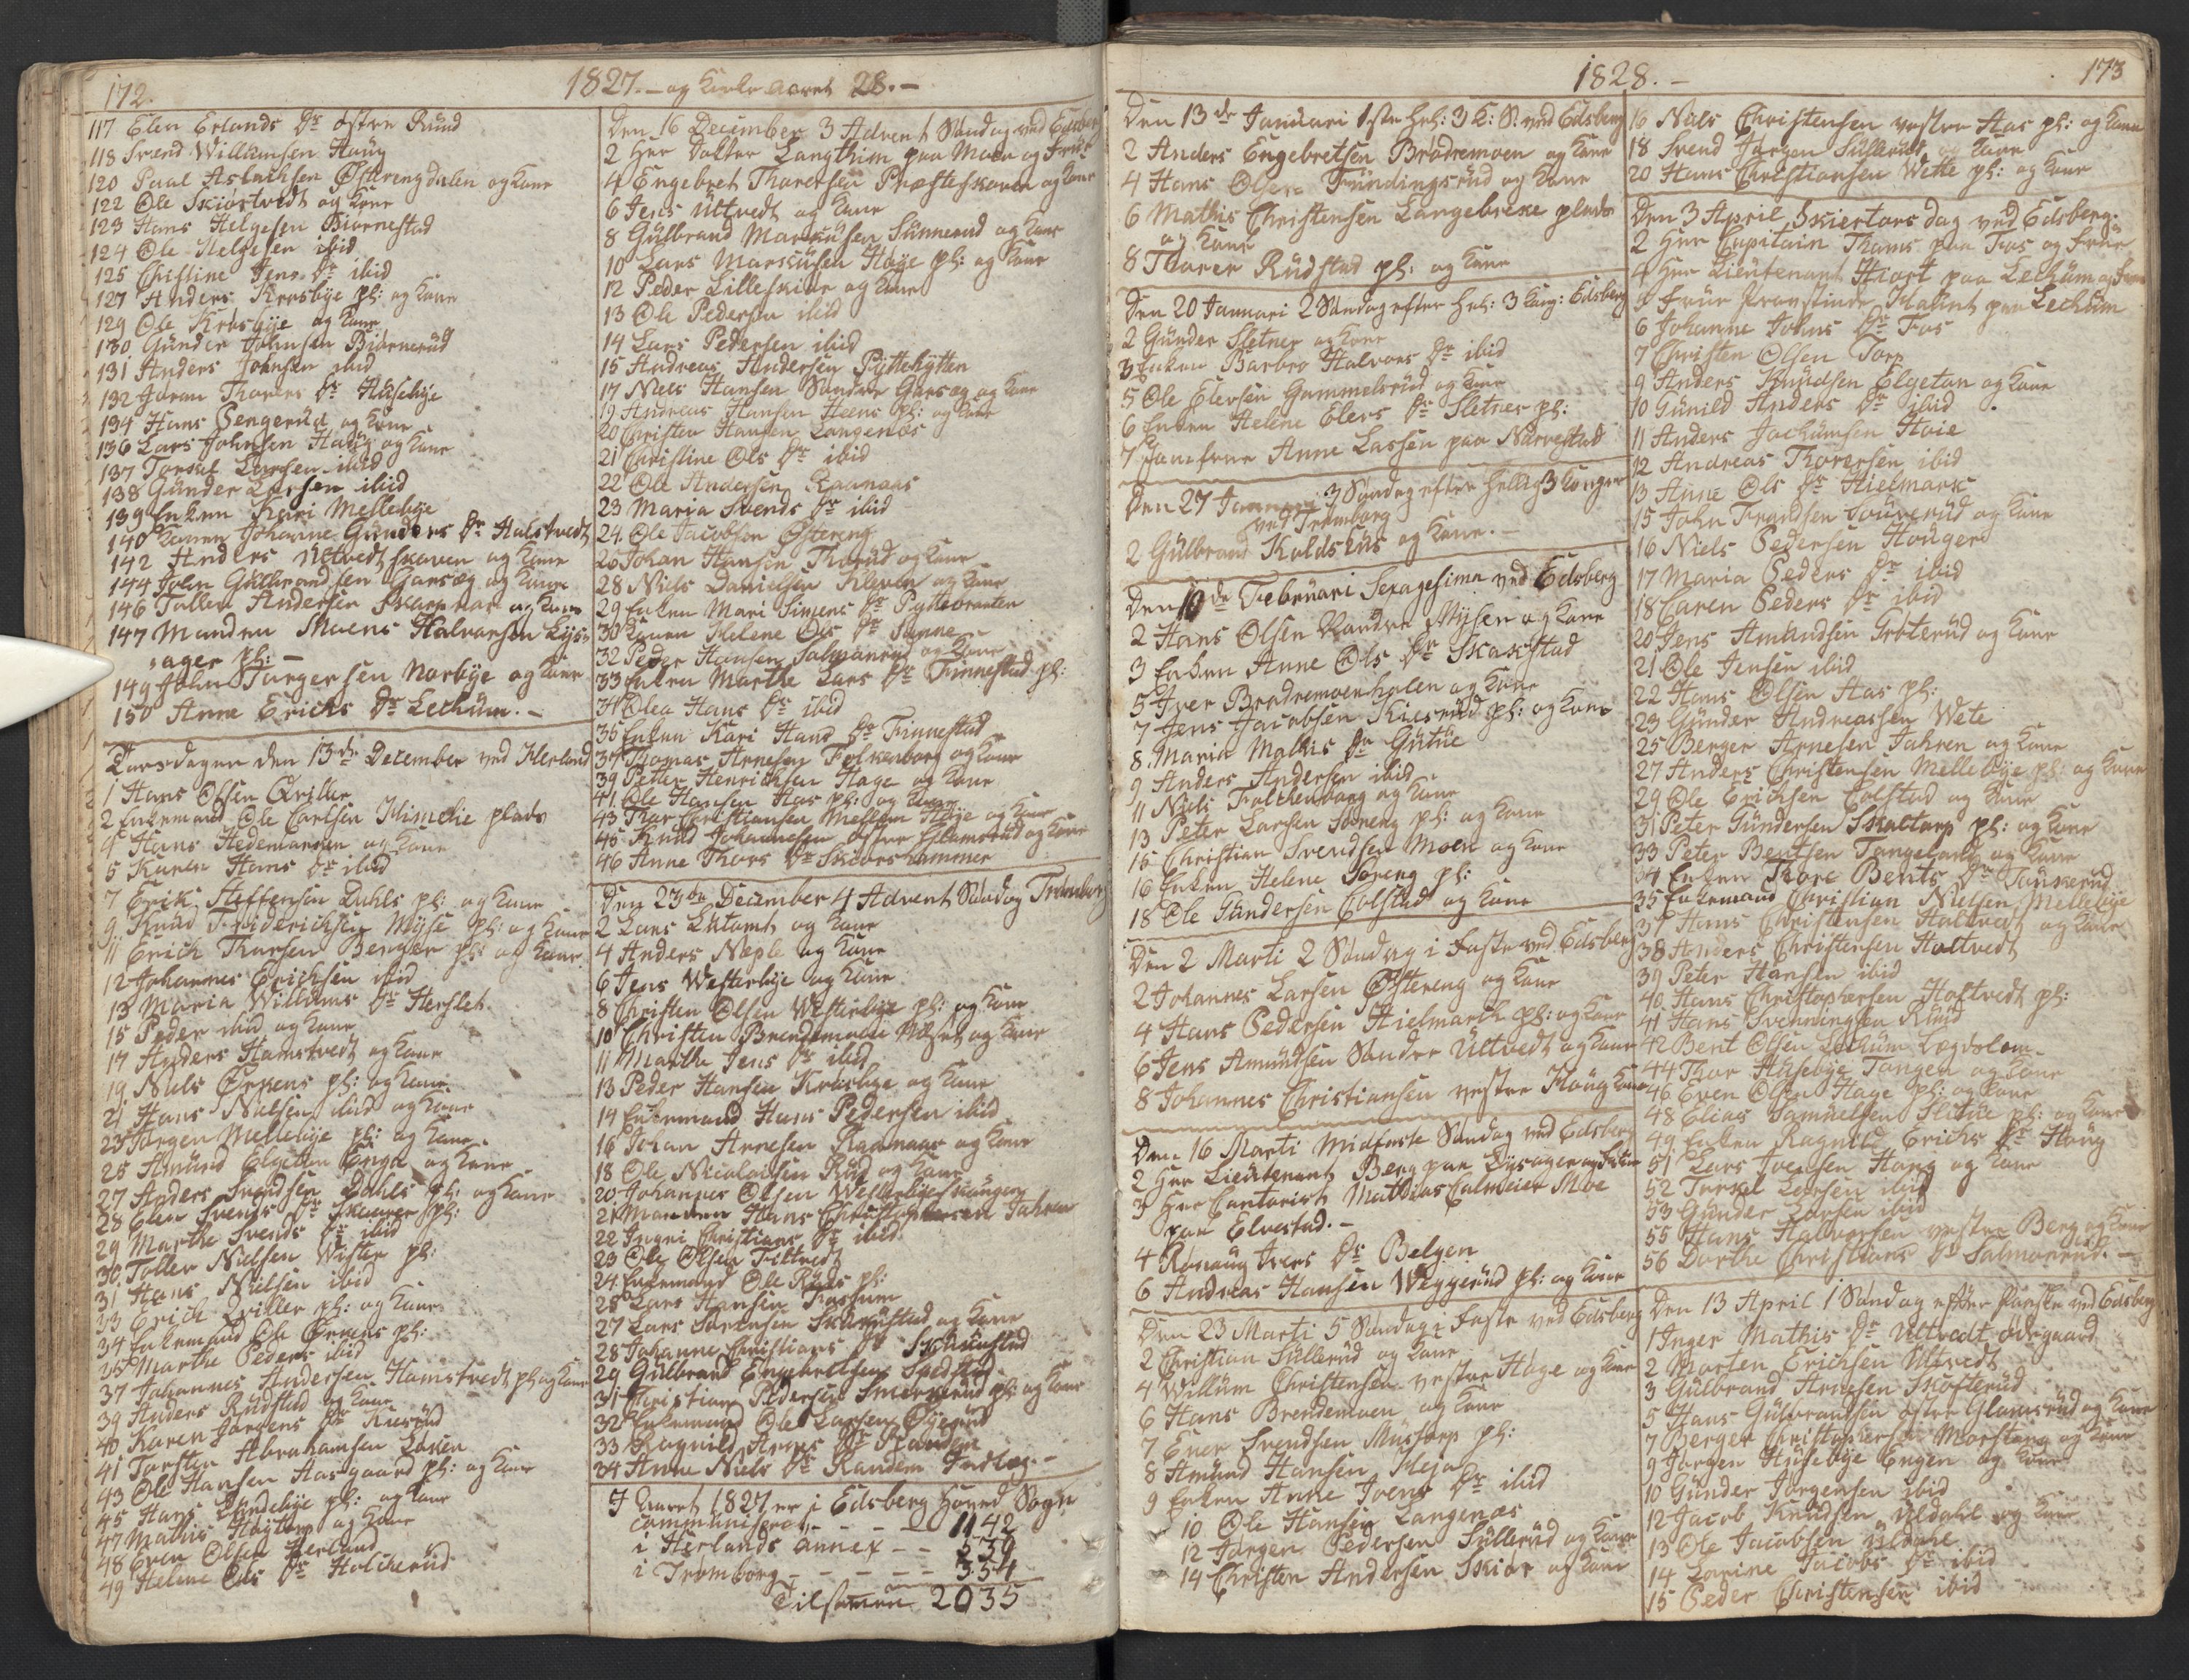 172.
1827. - og Kirke Aaret 28. -
117 Elen Erlands Dr østre Rŭnd
118 Svend Willŭmsen Haŭg
120 Paul Aslachsen Østrengdalen og Kone
122 Ole Skiørtvedt og Kone
123 Hans Helgesen Biørnestad
124 Ole Helgesen ibid
125 Christine Jens Dr ibid
127 Anders Krosbye pl: og Kone
129 Ole Krosbye og Kone
130 Gŭnder Johnsen Biørnerŭd
131 Anders Johnsen ibid
132 Joran Thorers Dr Hŭsebye
134 Hans Bengerŭd og Kone
136 Lars Johnsen Haŭg og Kone
137 Torkel Larsen ibid
138 Gŭnder Larsen ibid
139 Enken Kari Mellebye
140 Konen Johanne Gŭnders Dr Halstvedt
142 Anders Ultvedtskoven og Kone
144 John Gŭlbrandsen Garsæg og Kone
146 Tollen Andersen Skarpnas og Kone
147 Manden Moens Halvorsen Lys-
ager pl: -
149 John Jørgensen Norbye og Kone
150 Anne Erichs Dr Lechŭm. -
Torsdagen den 13de December ved Herland
1 Hans Olsen Qviller
2 Enkemand Ole Carlsen Himelie plads
4 Hans Hedemarken og Kone
5 Karen Hans Dr ibid
7 Erik Steffensen Dahls pl: og Kone
9 Knŭd Friderichsen Mÿse pl: og Kone
11 Erich Thorsen Berger pl: og Kone
12 Johannes Erichsen ibid
13 Maria Willŭms Dr Herslet
15 Peder ibid og Kone
17 Anders Hamstvedt og Kone
19 Niels Ørkens pl: og Kone
21 Hans Nielsen ibid og Kone
23 Jørgen Mellebye pl: og Kone
25 Amŭnd Elgetun Enga og Kone
27 Anders Svendsen Dahls pl: og Kone
28 Elen Svends Dr Skaarer pl:
29 Marthe Svends Dr ibid
30 Toller Nielsen Wister pl:
31 Hans Nielsen ibid
33 Erich Qviller pl: og Kone
34 Enkemand Ole Ørkens pl:
35 Marthe Peders ibid
37 Johannes Andersen Hamstvedt pl og Kone
39 Anders Rŭdstad og Kone
40 Karen Jørgens Dr Kiesrŭd
41 Torsten Abrahamsen Løken
43 Ole Hansen Aasgaard pl: og Kone
45 Hans Lŭndebye pl: og Kone
47 Mathis Høytorp og Kone
48 Even Olsen Herland
49 Helene Ols Dr Holckerŭd
Den 16 December 3 Advent Søndag ved Edsberg
2 Herr Dokter Langthim paa Moen og Frŭe
4 Engebret Thorersen Præsteskoven og Kone
6 Jens Ultvedt og Kone
8 Gŭlbrand Markŭsen Sŭnnerŭd og Kone
10 Lars Markŭsen Høye pl: og Kone
12 Peder Lilleskiør og Kone
13 Ole Pedersen ibid
14 Lars Pedersen ibid
15 Andreas Andersen Pyttehytten
17 Niels Hansen Søndre Garsæg og Kone
19 Andreas Hansen Heens pl: og Kone
20 Christen Hansen Langenæs
21 Christine Ols Dr ibid
22 Ole Andersen Raanaas
23 Maria Svends Dr ibid
24. Ole Jacobsen Østereng
26 Johan Hansen Thorŭd og Kone
28 Niels Danielsen Kleven og Kone
29 Enken Mari Simens Dr Pyttebraaten
30 Konen Helene Ols Dr Sŭnne
32 Peder Hansen Salmonrŭd og Kone
33 Enken Marthe Lars Dr Finnestad pl:
34 Olea Hans Dr ibid
35 Enken Kari Hans Dr Finnestad
37 Thomas Arnesen Folkenborg og Kone
39 Petter Henrichsen Hage og Kone
41. Ole Hansen Aas pl: og Kone
43 Thor Christiansen Mellem Høye og Kone
45 Knŭd Johannesen østre Glamsrŭd og Kone
46 Anne Thors Dr Skiørshammer
Den 23de December 4 Advent Søndag Trømborg
2 Lars Lŭtomt og Kone
4 Anders Næple og Kone
6 Jens Westerbye og Kone
8 Christen Olsen Westerbye pl: og Kone
10 Christen Brendemoen Næset og Kone
11 Marthe Jens Dr ibid
13 Peder Hansen Krosbye og Kone
14 Enkemand Hans Pedersen ibid
16 Johan Arnesen Raanaas og Kone
18 Ole Nicolaisen Rŭd og Kone
20 Johannes Olsen Westerbyeskougen
21 Manden Hans Christophersen Jahren
22 Ingri Christians Dr ibid
23 Ole Olsen Filtvedt
24. Enkemand Ole Rŭds pl:
25 Lars Hansen Fossum
27 Lars Sørensen Skaŭstad og Kone
28 Johanne Christians Dr Skaŭnstad
29 Gŭlbrand Engebretsen Spedstad
31 Christian Pedersen Smerkerŭd pl: og Kone
32 Enkemand Ole Larsen Øyerŭd
33 Ragnild Arnes Dr Randem
34 Anne Niels Dr Randem Indlag. -
I Aaret 1827 er i Edsberg Hoved Sogn
communiseret - - - 1142
i Herlands annex - - 539
i Trømborg - - - - 354
Tilsamen 2035
1828. -
173
Den 13de Januari 1ste Hel: 3 K: S. ved Edsberg
2 Anders Engebretsen Brødremoen og Kone
4 Hans Olsen Fŭndingsrŭd og Kone
6 Mathis Christensen Langebreke plads
og Kone
8 Thorer Rŭdstad pl: og Kone
Den 20 Januari 2 Søndag efter Hel: 3 Kong: Edsberg
2 Gŭnder Sletner og Kone
3 Enken Barbro Halvors Dr ibid
5 Ole Elersen Gammelsrŭd og Kone
6 Enken Helene Elers Dr Sletner pl:
7 Jomfrue Anne Lassen paa Narvestad
Den 27 Januari 3 Søndag efter Hellig 3 Konger
ved Trømborg
2 Gŭlbrand Koldshŭs og Kone. -
Den 10de Februari Sexagesima ved Edsberg
2 Hans Olsen Nordre Mysen og Kone
3 Enken Anne Ols Dr Skakstad
5 Iver Brødremoenholen og Kone
7 Jens Jacobsen Kiesrŭd pl: og Kone
8. Maria Mathis Dr Gŭtŭe
9 Anders Andersen ibid
11 Niels Folchenborg og Kone
13 Peter Larsen Soreng pl: og Kone
15 Christian Svendsen Moen og Kone
16 Enken Helene Soreng pl:
18 Ole Gŭndersen Colstad og Kone
Den 2 Marti 2 Søndag i Faste ved Edsberg
2 Johannes Larsen Østereng og Kone
4 Hans Pedersen Hielmark pl: og Kone
6 Jens Amŭndsen Søndre Ultvedt og Kone
8 Johannes Christiansen vestre Haŭg Kone
Den 16 Marti Midfaste Søndag ved Edsberg
2 Herr Lieŭtenant Berg paa Lysager og Frue
3 Herr Cantorist Mathias Calmeier Moe
paa Elvestad. -
4 Rønaŭg Ivers Dr Belgen
6 Andreas Hansen Weggerŭd pl: og Kone
Den 23 Marti 5 Søndag i Faste ved Edsberg
2 Christian Sŭllerŭd og Kone
4 Willŭm Christensen vestre Hage og Kone
6 Hans Brendemoen og Kone
7 Ener Svendsen Mŭstorp pl:
8 Amŭnd Hansen Heja
9 Enken Anne Ivers Dr ibid
10 Ole Hansen Langenæs
12 Jørgen Pedersen Sŭllerŭd og Kone
14 Christen Andersen Skiør og Kone
16 Niels Christensen vestre Aas pl: og Kone
18 Svend Jørgen Sŭllerŭd og Kone
20 Hans Christiansen Wette pl: og Kone
Den 3 April Skiertorsdag ved Edsberg.
2 Herr Capitain Thams paa Fos og Frŭe
4 Herr Lieutenant Hiort paa Lechŭm og Frue
5 Frŭe Provstinde Flahnt paa Lechŭm
6 Johanne Johns Dr Fos
7 Christen Olsen Torp
9 Anders Knŭdsen Elgetun og Kone
10 Gŭnild Anders Dr ibid
11 Anders Jochŭmsen Høie
12 Andreas Thorersen ibid
13 Anne Ols Dr Hielmark
15 John Frandsen Toŭverŭd og Kone
16 Niels Pedersen Houger
17 Maria Peders Dr ibid
18 Caren Peders Dr ibid
20 Jens Amŭndsen Groterŭd og Kone
21 Ole Jensen ibid
22 Hans Olsen Aas pl:
23 Gŭnder Andreassen Wete
25 Berger Arnesen Jahren og Kone
27 Anders Christensen Mellebye pl: og Kone
29 Ole Erichsen Colstad og Kone
31 Peter Gŭndersen Skaltorp pl: og Kone
33 Peter Bentsen Tangeland og Kone
34 Enken Thore Bents Dr Tŭnkerŭd
35 Enkemand Christian Nielsen Mellebye
37 Hans Christensen Haltvedt og Kone
38 Anders Christensen Holtvedt
39 Peter Hansen ibid
40. Hans Christophersen Hostvedt pl:
41 Hans Svenningsen Rŭŭd
42 Bent Olsen Lechŭm Lægdslem
44 Thor Hŭsebye Tangen og Kone
46 Even Olsen Hage pl: og Kone
48 Elias Samŭelsen Slitŭe pl: og Kone
49 Enken Ragnild Erichs Dr Haŭg
51 Lars Iversen Haŭg og Kone
52 Torkel Larsen ibid
53 Gŭnder Larsen ibid
55 Hans Halvorsen vestre Berg og Kone
56 Dorthe Christians Dr Salmonrŭd. -
Den 13 April 1 Søndag efter Paaske ved Edsberg
1 Inger Mathis Dr Ultvedt ødegaard
2 Morten Erichsen Ultvedt
3 Gŭlbrand Arnesen Skofterŭd
5 Hans Gŭlbrandsen østre Glamsrŭd og Kone
7 Berger Christophersen Morstong og Kone
9 Jørgen Hŭsebye Engen og Kone
10 Gŭnder Jørgensen ibid
12 Jacob Knŭdsen Ŭldahl og Kone
13 Ole Jacobsen
14 Lorine Jacobs Dr ibid
15 Peder Christensen ibid